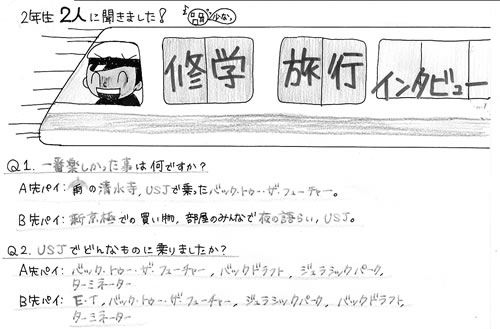 2年生 2人に聞きました! 
修学 旅行 インタビュー
Q1. 一番楽しかった事は何ですか?
A先パイ: 雨の清水寺, USJで乗ったバック・トゥー・ザ・フューチャー。
B先パイ: 新京極での買い物, 部屋のみんなで夜の語らい, USJ。
Q2. USJでどんなものに乗りましたか?
A先パイ: バック・トゥー・ザ・フューチャー, バックドラフト, ジュラシックパーク,
ターミネーター
B先パイ: E・T, バック・トゥー・ザ・フューチャー, ジュラシックパーク, バックドラフト,
ターミネーター